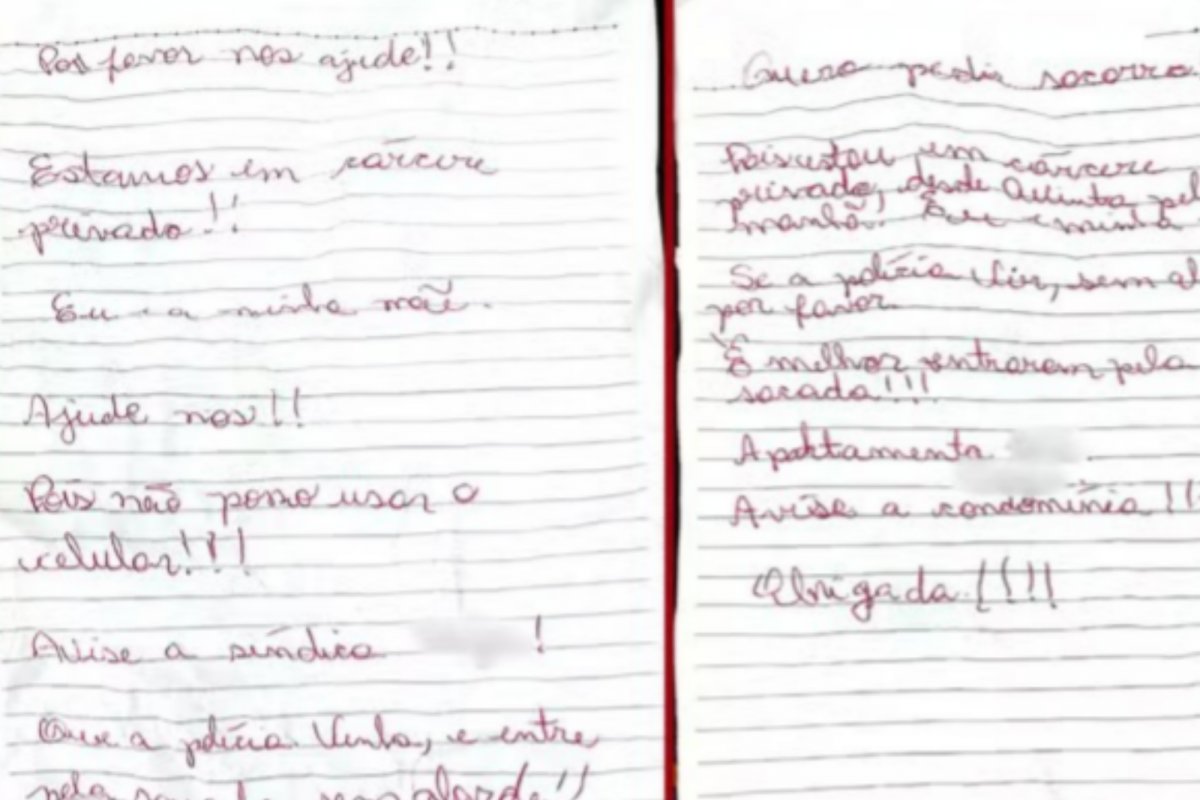 Por favor nos ajude!!
Estamos em cárcere
privado!!
Eu e a minha mãe.
Ajude nos!!
Pois não posso usar o
celular!!!
Avise a síndica !
Que a polícia Venha, e entre
pela sacada sem alarde!!
Quero pedir socorro
Pois estou em cárcere
privado, desde Quinta pel
manhã. Eu e minha
Se a polícia Vir, sem al
por favor.
É melhor entrarem pela
sacada!!!
Apartamento
Avise a condomínia !!
Obrigada !!!!